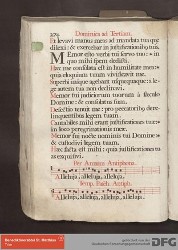 274 Dominica ad Tertiam.
Et levavi manus meas ad mandata tua quæ
dilexi: & exercebar in justificationibus
Memor esto verbi tui servo tuo: in
quo mihi spem dedisti.
Hæc me consolata est in humilitate mea:
quia eloquium tuum vivificavit me.
Superbi iniquè agebant usquequaque: à le-
ge autem tua non declinavi.
Memor fui judiciorum tuorum à sæculo
Domine: & consolatus sum.
Defectio tenuit me: pro peccatoribus de-
relinquentibus legem tuam.
Cantabiles mihi erant justificationes tuæ:
in loco peregrinationis meæ.
Memor fui nocte nominis tui Domine:
& custodivi legem tuam.
Hæc facta est mihi: quia justificationes tu-
as exquisivi.
Per Annum Antiphona.
Alleluja, alleluja, alleluja.
Temp. Pasch. Antiph.
Alleluja, alleluja, alleluja, alleluja.
DFG